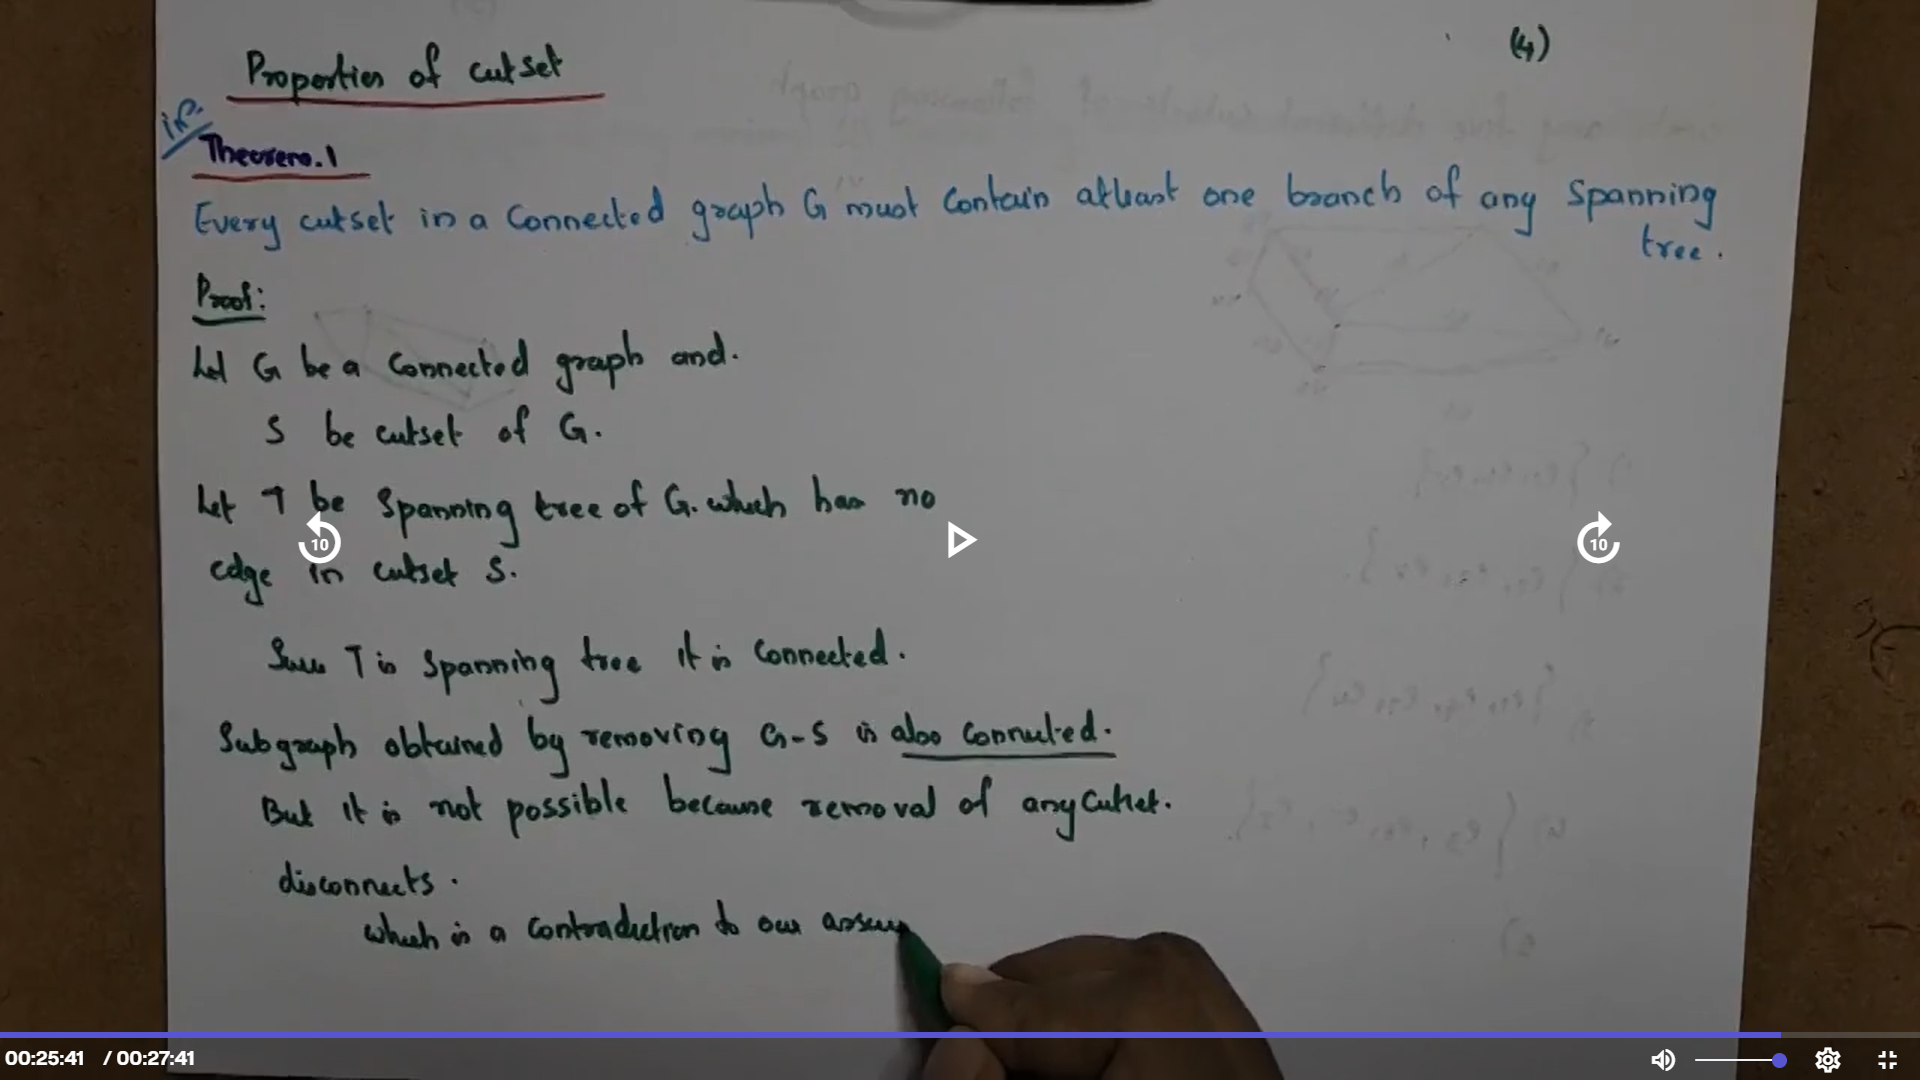 (4)
Properties of cutset
imp.
Theorem.1
Every cutset in a Connected graph G must Contain atleast one branch of any Spanning
tree.
Proof:
Let G be a Connected graph and.
S be cutset of G.
Let T be Spanning tree of G. which has no
edge in cutset S.
Since T is Spanning tree it is Connected.
Subgraph obtained by removing G-S is also Connected.
But it is not possible because removal of any Cutset.
disconnects.
which is a Contradiction to our assum
10
10
00:25:41 / 00:27:41